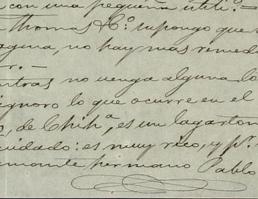 con una pequeña utili.-
Thomas & Cº. supongo que
laguna, no hay mas remed
r.-
ntras no venga alguna lo
ignoro lo que ocurre en el
, de Chihª, es un lagarton
cuidado: es muy rico, y pr.
amante hermano Pablo